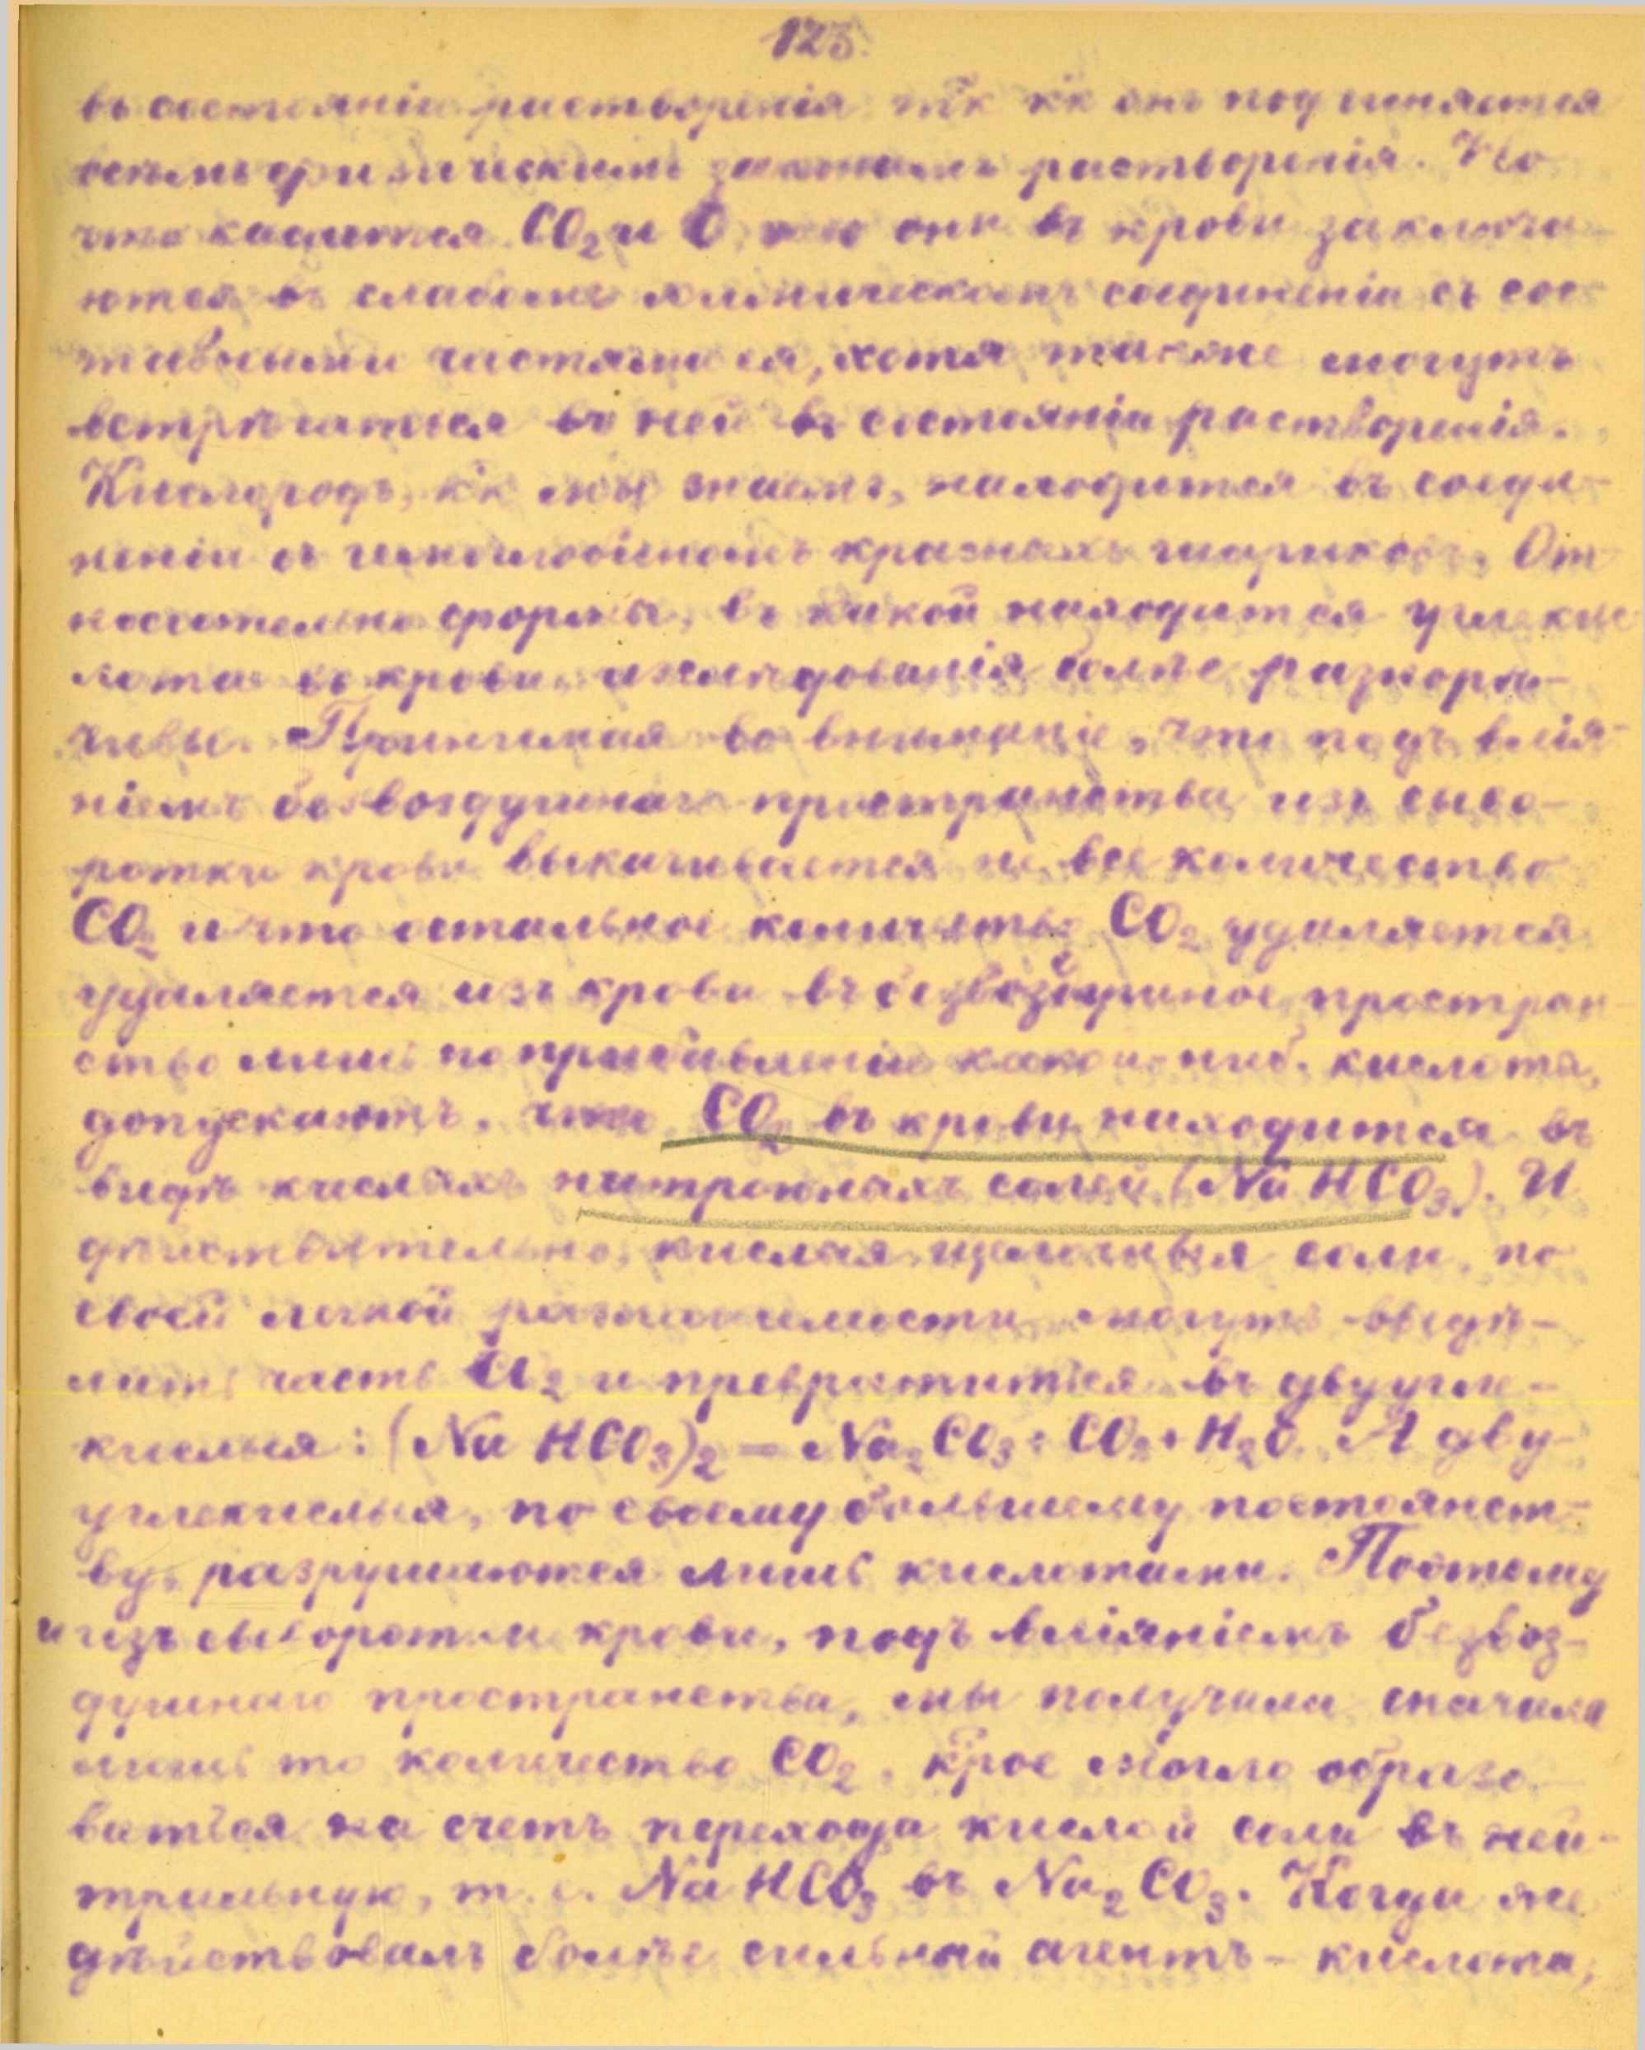 123.
въ состояніи растворенія т҃к к҃к онъ подчиняется
всѣмъ физическимъ законамъ растворенія. Но
что касается CO2 и O, то они въ крови заключа-
ются въ слабомъ химическомъ соединеніи съ сос-
тавными частями ея, хотя также могутъ
встрѣчаться въ ней въ состояніи растворенія.
Кислородъ, к҃к мы знаемъ, находится въ соеди-
неніи съ гемоглобиномъ красныхъ шариковъ. От-
носительно формы, въ какой находится углекис-
лота въ крови, изслѣдованія болѣе разнорѣ-
чивы. Принимая во вниманіе, что подъ влія-
ніемъ безвоздушнаго пространства изъ сыво-
ротки крови выкачивается не все количество
CO2 и что остальное количество CO2 удаляется
удаляется изъ крови въ безвоздушное простран-
ство лишь по прибавленіи какой-ниб. кислоты,
допускаютъ, что CO2 въ крови находится въ
видѣ кислыхъ натронныхъ солей (NaHCO3). И
дѣйствительно, кислыя щелочныя соли, по
своей легкой разложимости могутъ выдѣ-
лить часть CO2 и превратиться въ двуугле-
кислыя: (NaHCO3)2 = Na2CO3 + CO2 + H2O. А дву-
углекислыя, по своему большему постоянст-
ву, разрушаются лишь кислотами. Поэтому
и изъ сыворотки крови, подъ вліяніемъ безвоз-
душнаго пространства, мы получили сначала
лишь то количество CO2, к҃рое могло образо-
ваться на счетъ перехода кислой соли въ ней-
тральную, т. е. NaHCO3 въ Na2CO3. Когда же
дѣйствовалъ болѣе сильный агентъ - кислота,